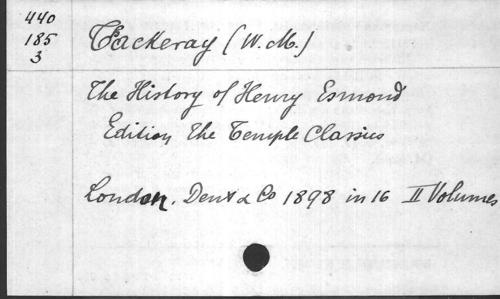 440
185
3
Thackeray (W. M.)
The History of Henry Esmond
Edition The Temple Classics
London. Dent & Co 1898 in 16 II Volumes